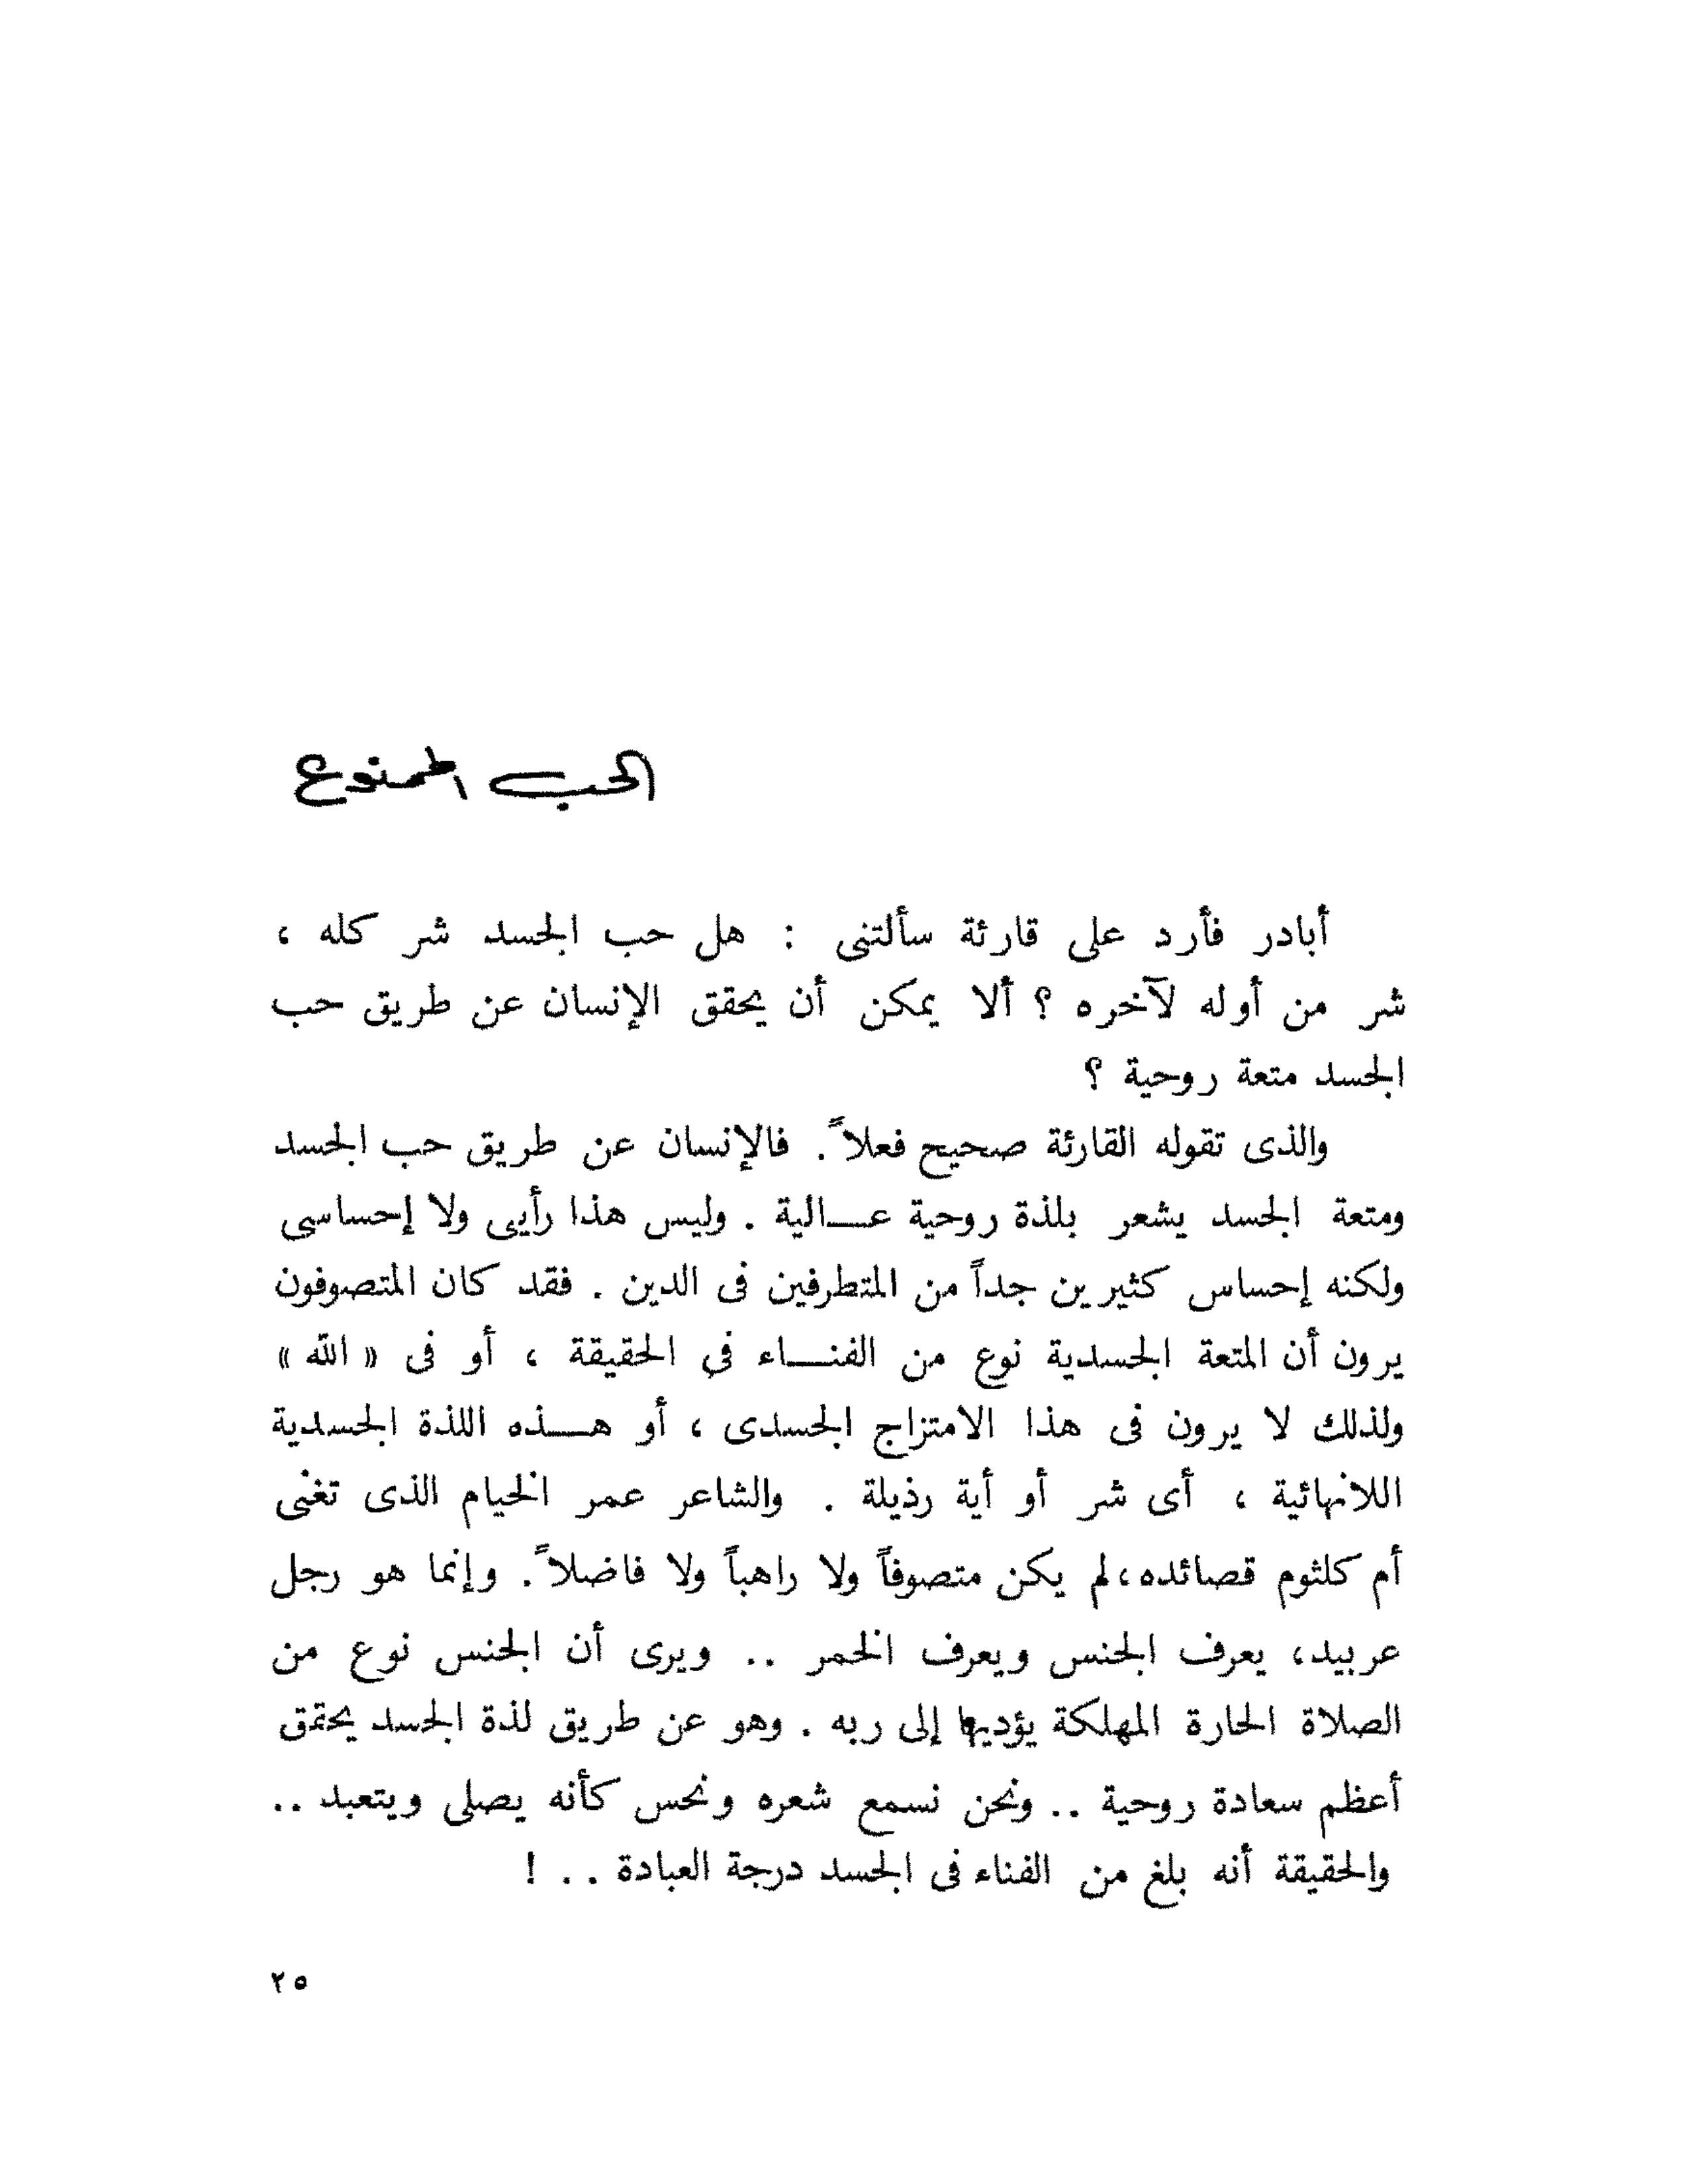 الحب الممنوع
أبادر فأرد على قارئة سألتنى : هل حب الجسد شر كله ،
شر من أوله لآخره ؟ ألا يمكن أن يحقق الإنسان عن طريق حب
الجسد متعة روحية ؟
والذى تقوله القارئة صحيح فعلاً . فالإنسان عن طريق حب الجسد
ومتعة الجسد يشعر بلذة روحية عـــالية . وليس هذا رأيى ولا إحساسى
ولكنه إحساس كثيرين جداً من المتطرفين فى الدين . فقد كان المتصوفون
يرون أن المتعة الجسدية نوع من الفنـــاء فى الحقيقة ، أو فى « الله »
ولذلك لا يرون فى هذا الامتزاج الجسدى ، أو هـــذه اللذة الجسدية
اللانهائية ، أى شر أو أية رذيلة . والشاعر عمر الخيام الذى تغنى
أم كلثوم قصائده ، لم يكن متصوفاً ولا راهباً ولا فاضلاً . وإنما هو رجل
عربيد ، يعرف الجنس ويعرف الخمر .. ويرى أن الجنس نوع من
الصلاة الحارة المهلكة يؤديها إلى ربه . وهو عن طريق لذة الجسد يحقق
أعظم سعادة روحية .. ونحن نسمع شعره ونحس كأنه يصلى ويتعبد ..
والحقيقة أنه بلغ من الفناء فى الجسد درجة العبادة .. !
٢٥